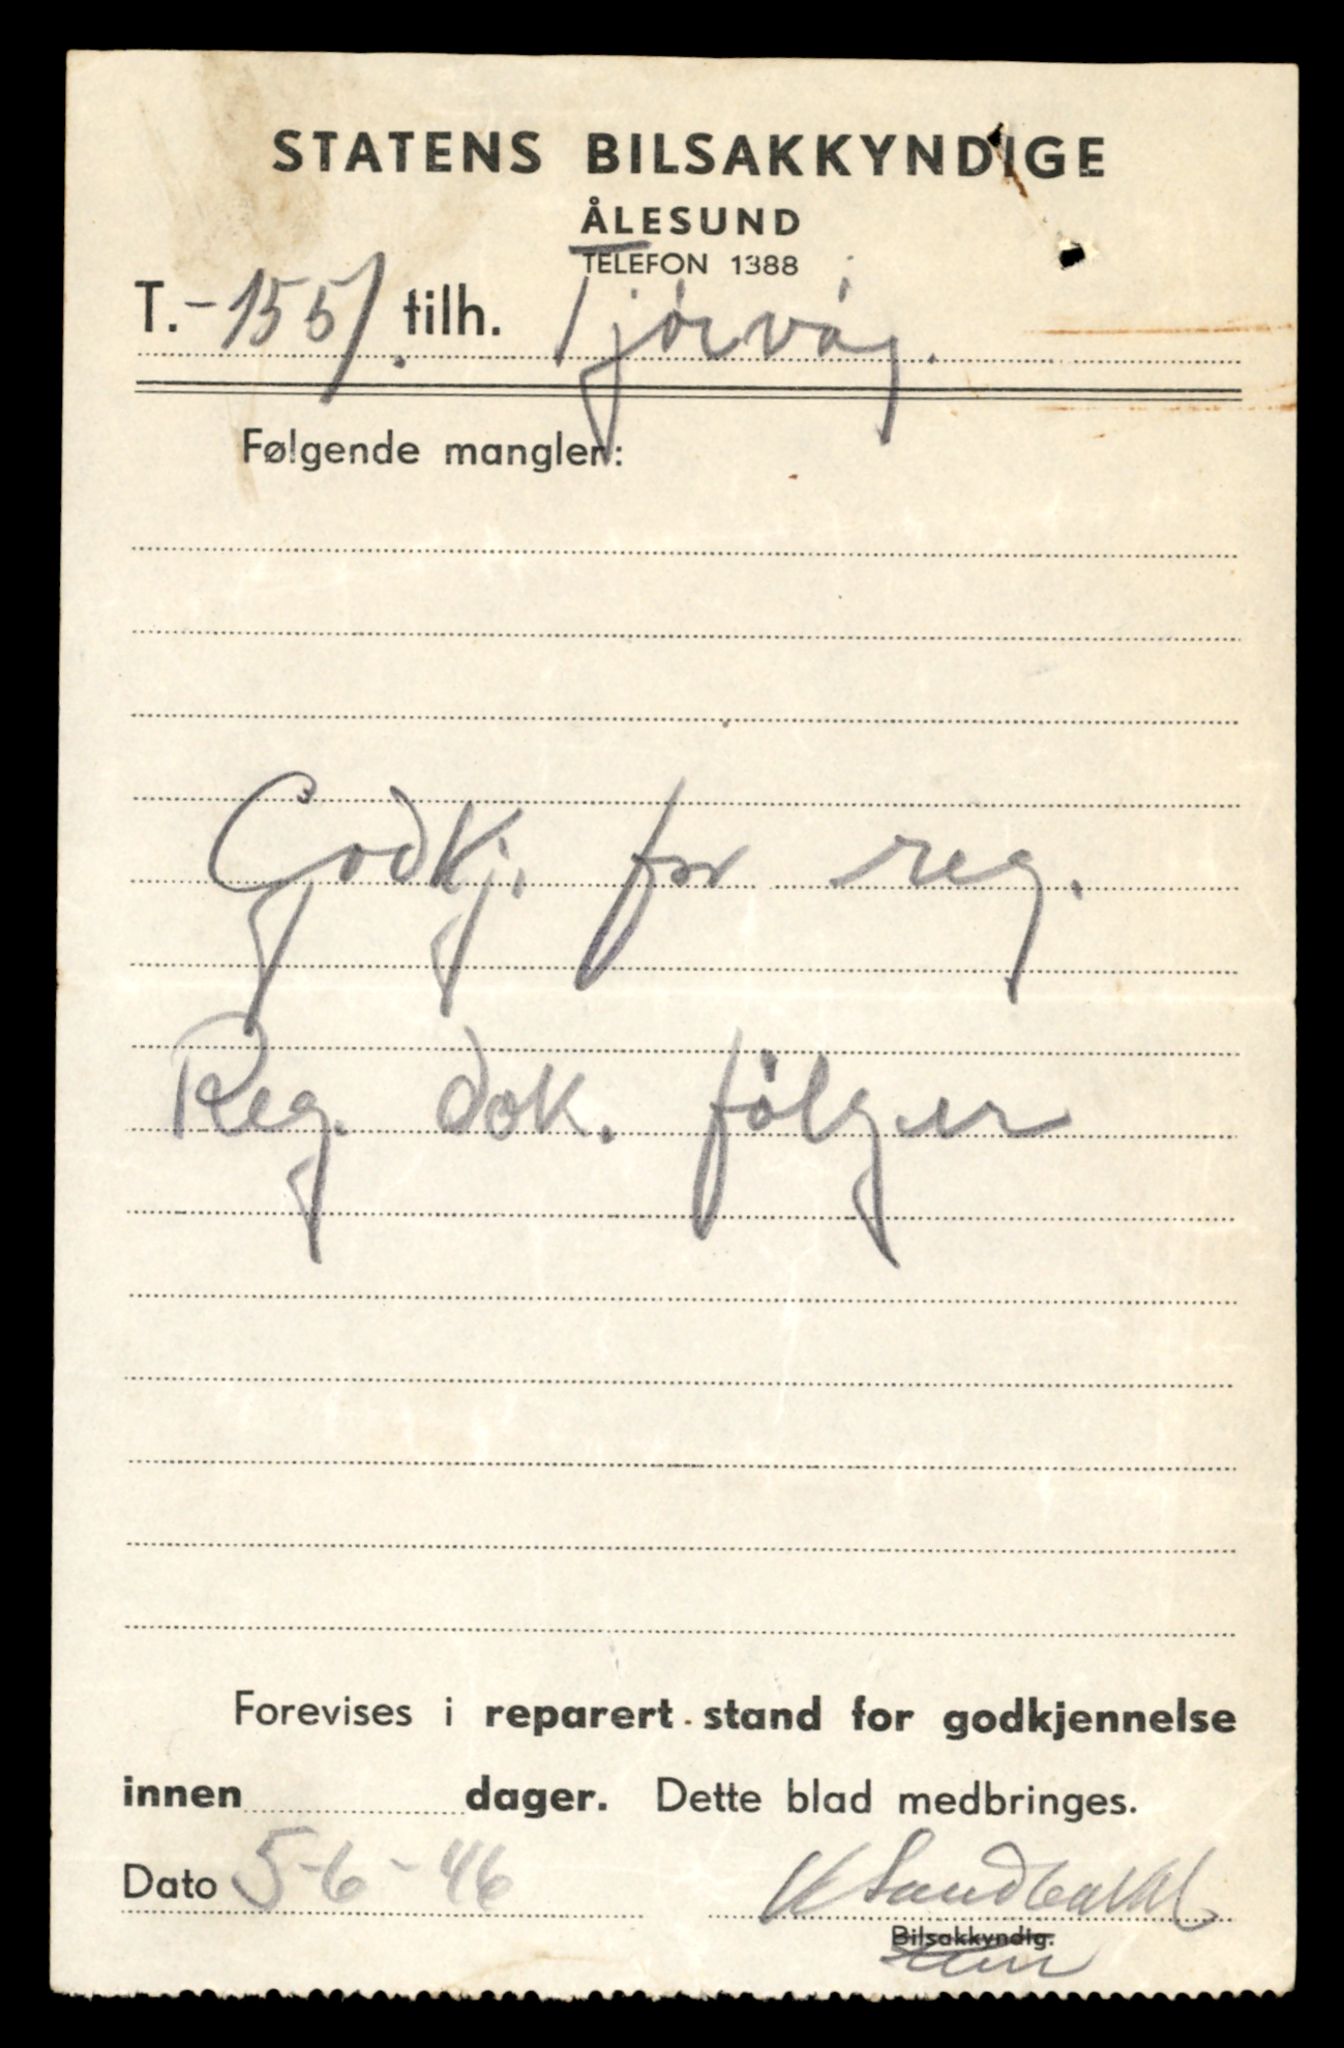 STATENS BILSAKKYNDIGE
ÅLESUND
TELEFON 1388
T.-1551. tilh. Tjørvåg.
Følgende mangler:
Godkj. for reg.
Reg. dok. følger
Forevises i reparert stand for godkjennelse
innen dager. Dette blad medbringes.
Dato 5-6-46
Bilsakkyndig.